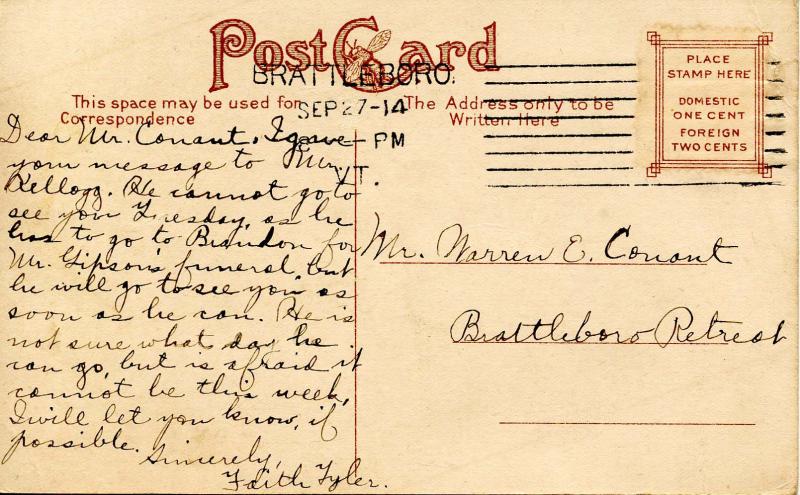 Post Card
BRATTLEBORO.
SEP 27-14
- PM
VT.
This space may be used for
Correspondence
The Address only to be
Written Here
PLACE
STAMP HERE
DOMESTIC
ONE CENT
FOREIGN
TWO CENTS
Dear Mr. Conant. I gave
your message to Mr.
Kellogg. He cannot go to
see you Tuesday, as he
has to go to Brandon for
Mr. Gipson's funeral, but
he will go to see you as
soon as he can. He is
not sure what day he
can go, but is afraid it
cannot be this week,
I will let you know, if
possible.
Sincerely,
Faith Tyler.
Mr. Warren E. Conant
Brattleboro Retreat